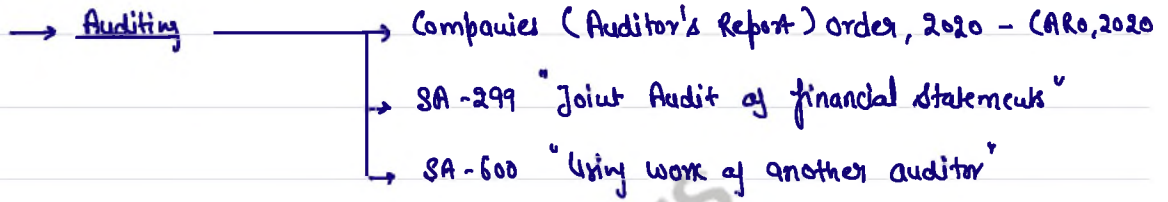 → Auditing → Companies (Auditor's Report) Order, 2020 - CARO, 2020
→ SA-299 "Joint Audit of financial statements"
→ SA-600 "Using work of another auditor"